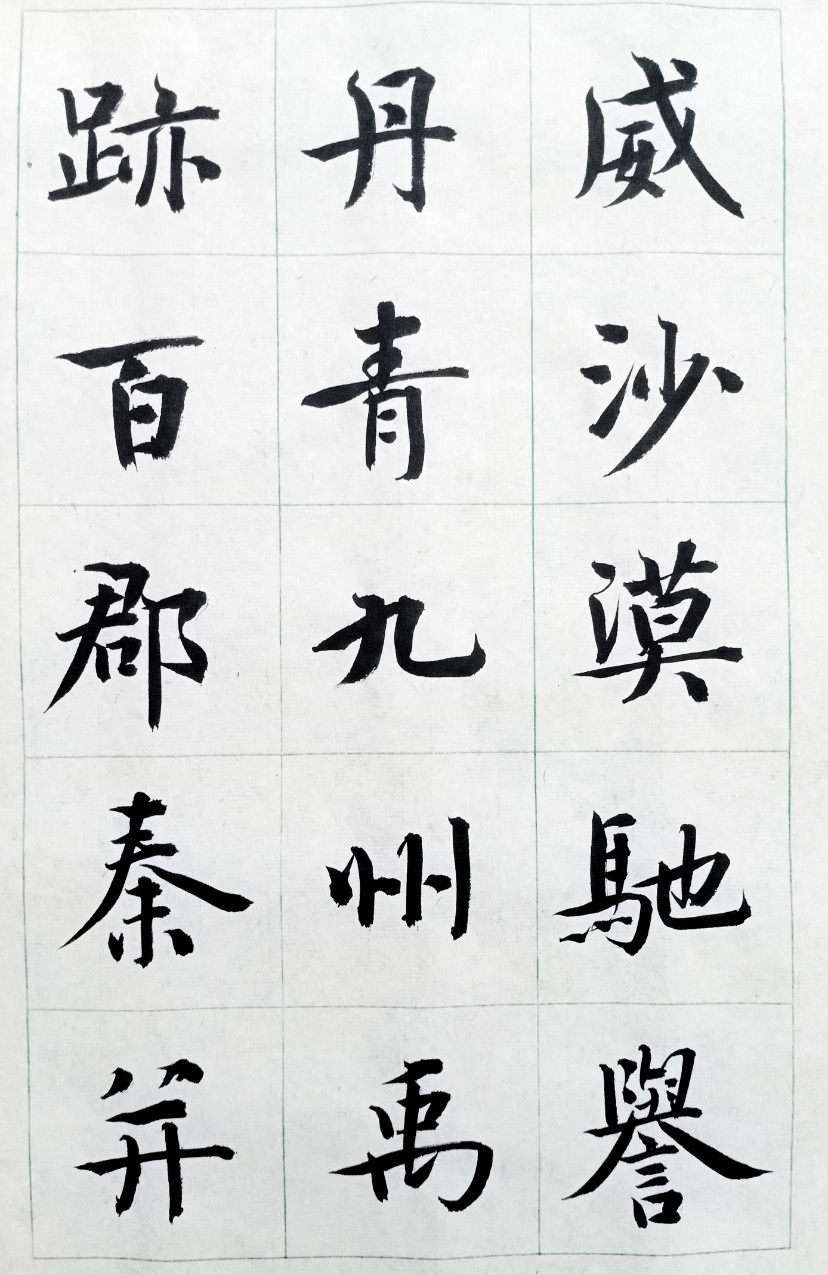 威沙漠馳譽
丹青九州禹
跡百郡秦并